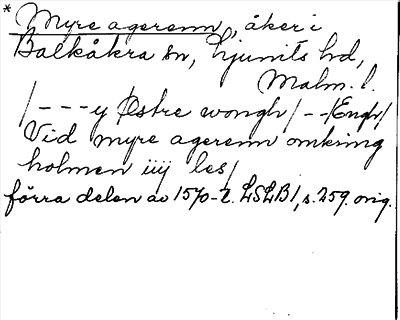 * Myre agerenn, åker i
Balkåkra sn, Ljunits hd,
Malm. l.
/---y Østre wongh/--/Engh/
Vid myre agerenn omkring
holmen iiij les/
förra delen av 1570-t. LSLB1, s. 259. orig.